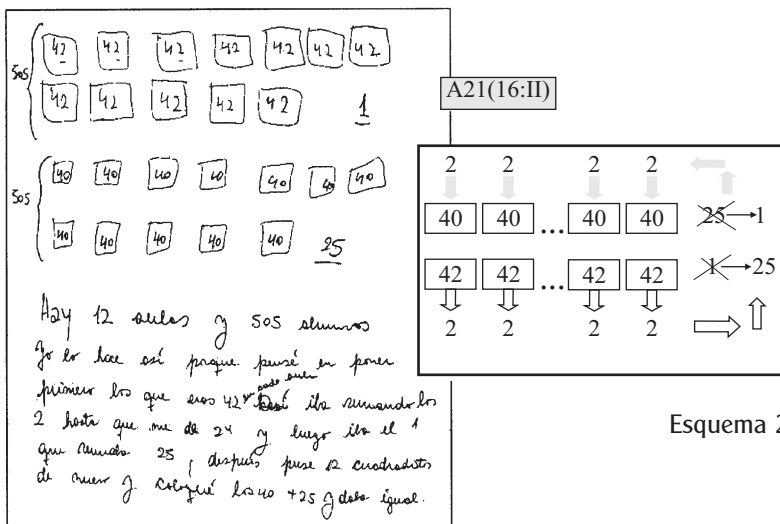 505 42 42 42 42 42 42 42
42 42 42 42 42 1
505 40 40 40 40 40 40 40
40 40 40 40 40 25
Hay 12 aulas y 505 alumnos
Yo lo hace así porque pensé en poner
primero los que eran 42 en cada aula iba sumando los
2 hasta que me da 24 y luego iba el 1
que sumaba 25, después puse 12 cuadraditos
de nuevo y coloqué los 40 +25 y daba igual.
A21(16:II)
2 2 2 2
40 40 ... 40 40 25 1
42 42 ... 42 42 1 25
2 2 2 2
Esquema 2